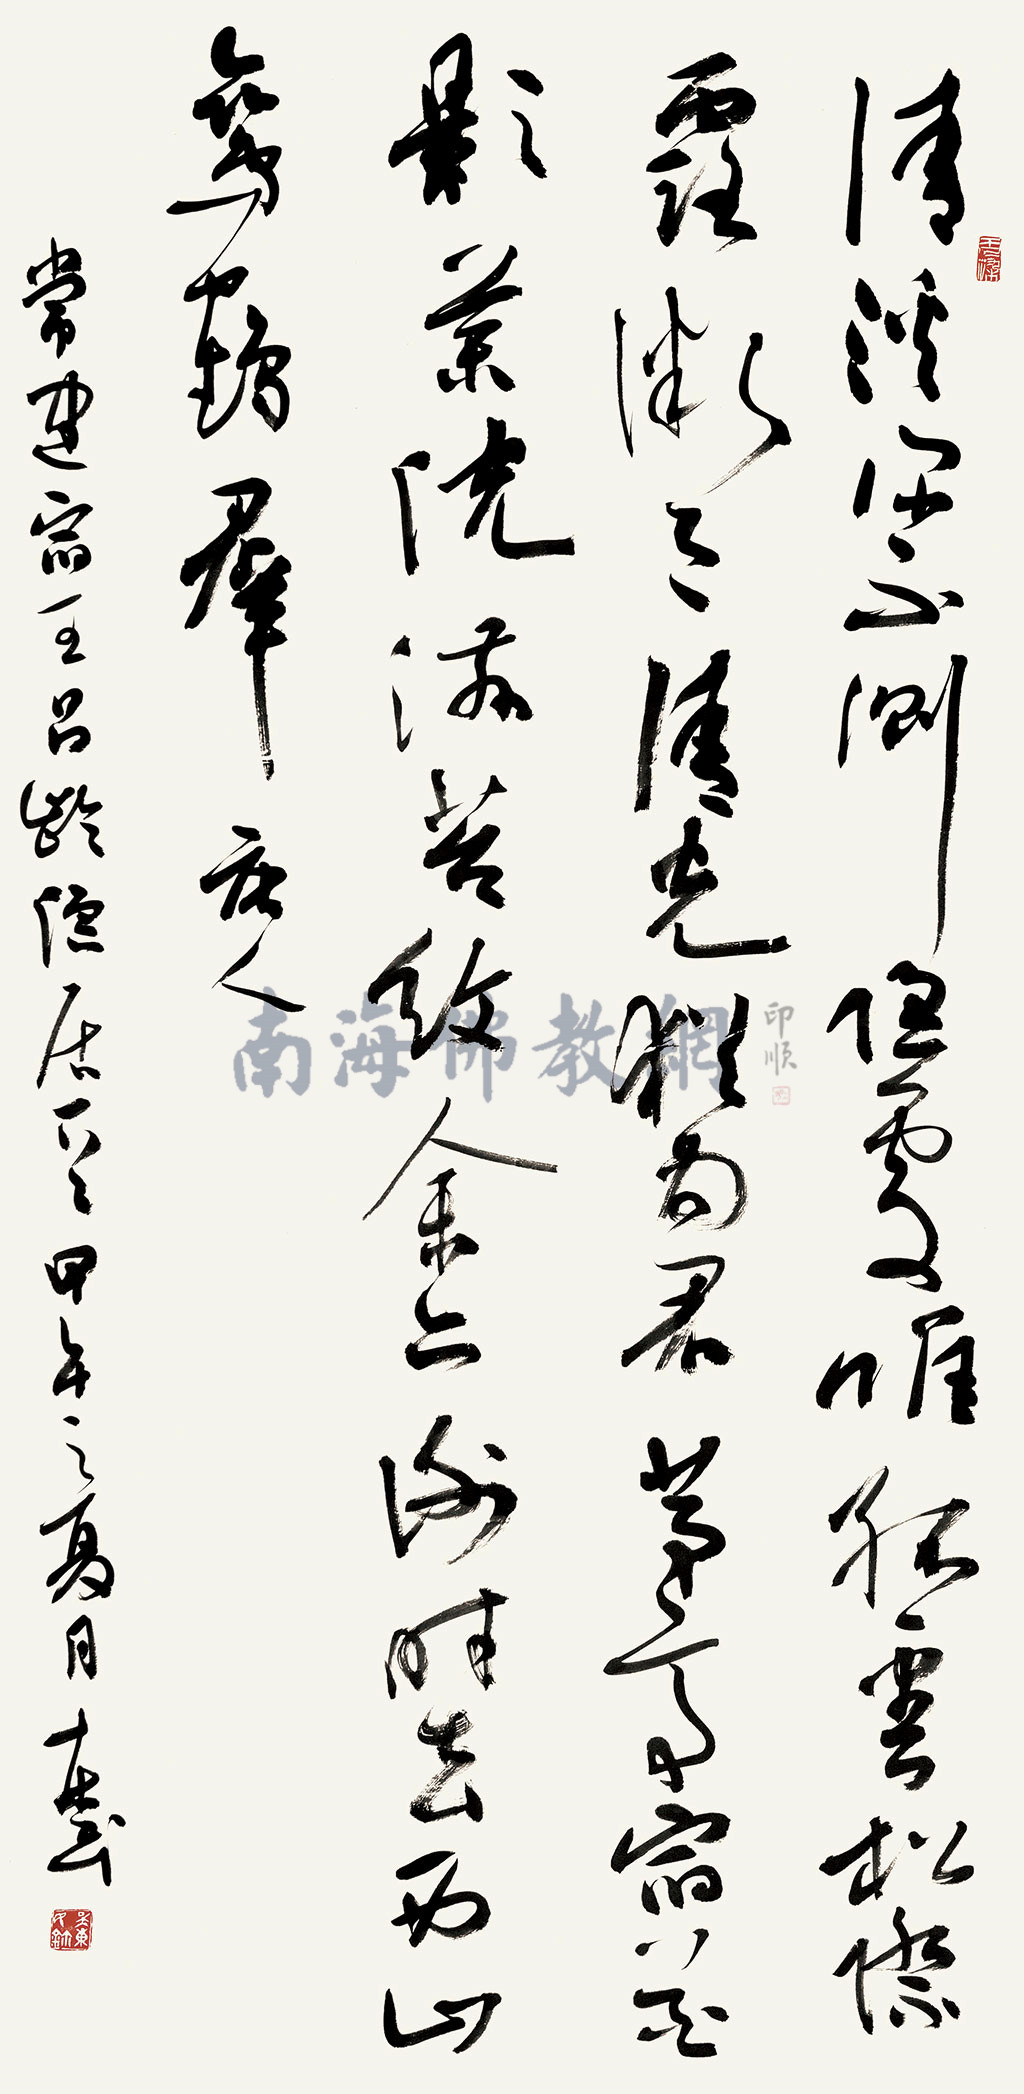 清溪深不測隱處唯孤雲松際
露微月清光猶為君茅亭宿花
影藥院滋苔紋余亦謝時去西山
鸞鶴羣 唐人
常建宿王昌齡隱居一首甲午之夏月
南海佛教網
印順